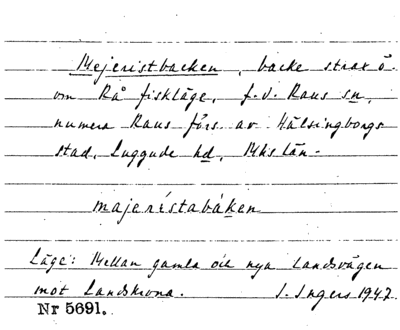 Mejeristbacken, backe strax ö.
om Rå fiskläge, f.d. Raus sn,
numera Raus förs. av Hälsingborgs
stad, Luggude hd, Mhs län.
majeristabáken
Läge: Mellan gamla och nya landsvägen
mot Landskrona. I. Ingers 1947
Nr 5691.